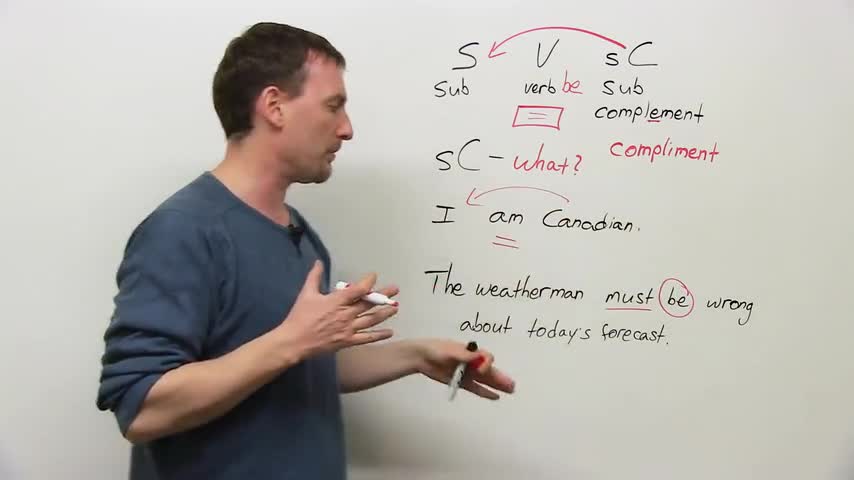 S V sC
sub verb be sub
= complement
sC - what? compliment
I am Canadian.
The weatherman must be wrong
about today's forecast.